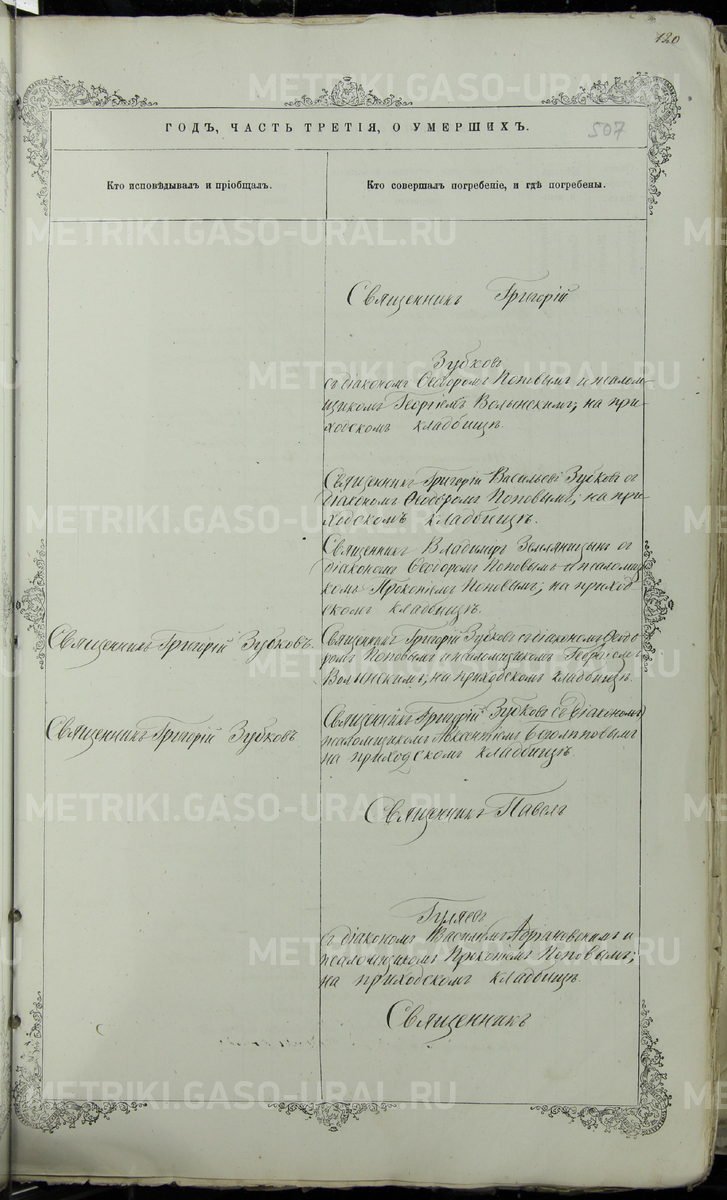 120
ГОДЪ, ЧАСТЬ ТРЕТІЯ, О УМЕРШИХЪ.
507
Кто исповѣдывалъ и пріобщалъ.
Кто совершалъ погребеніе, и гдѣ погребены.
Священникъ Григорій
Зубковъ
съ діакономъ Ѳеодоромъ Поповымъ и псалом-
щикомъ Георгіемъ Волынскимъ; на при-
ходскомъ кладбищѣ.
Священникъ Григорій Васильевъ Зубковъ съ
діакономъ Ѳеодоромъ Поповымъ; на при-
ходскомъ кладбищѣ.
Священникъ Владиміръ Земляницынъ съ
діакономъ Ѳеодоромъ Поповымъ и псаломщи-
комъ Прокопіемъ Поповымъ; на приход
скомъ кладбищѣ.
Священникъ Григорій Зубковъ.
Священникъ Григорій Зубковъ съ діакономъ Ѳеодо
ромъ Поповымъ и псаломщикомъ Георгіемъ
Волынскимъ; на приходскомъ кладбищѣ.
Священникъ Григорій Зубковъ
Священникъ Григорій Зубковъ съ діакономъ
псаломщикомъ на приходскомъ кладбищѣ
Священникъ Павелъ
Гиляевъ
съ діакономъ Василіемъ и
псаломщикомъ Прокопіемъ Поповымъ;
на приходскомъ кладбищѣ.
Священникъ
METRIKI.GASO-URAL.RU